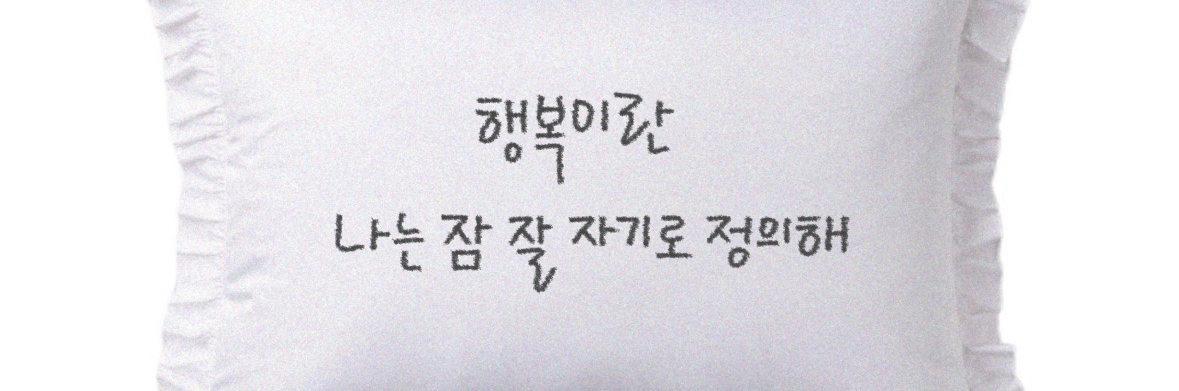 행복이란
나는 잠 잘 자기로 정의해